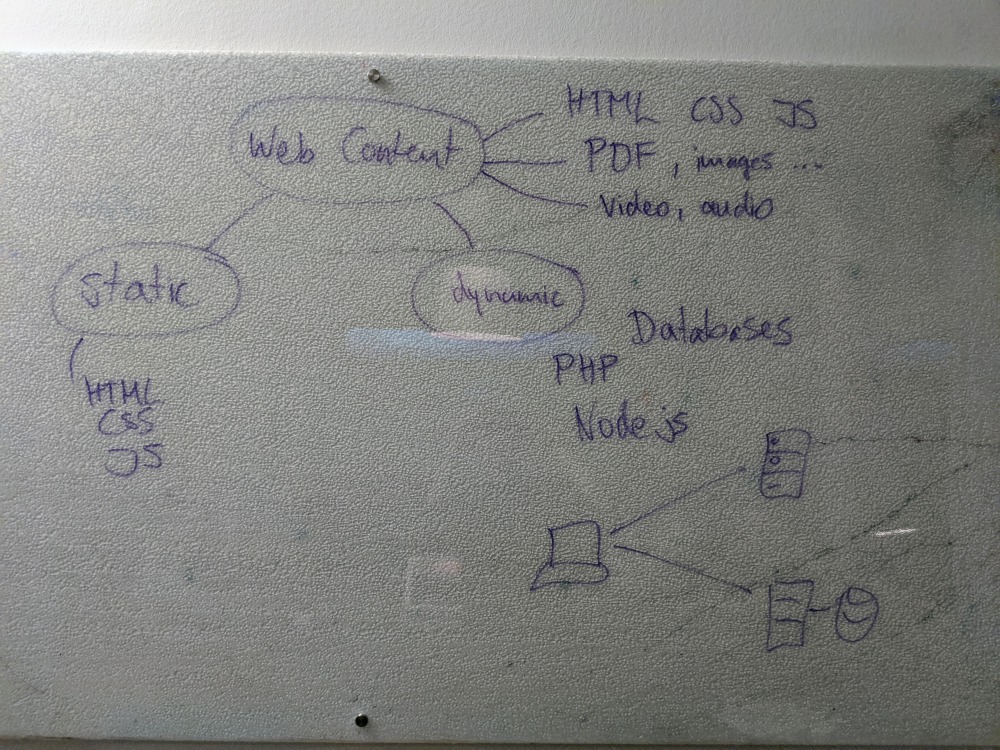 Web Content
HTML CSS JS
PDF, images ...
Video, audio
static
dynamic
HTML
CSS
JS
Databases
PHP
Node js